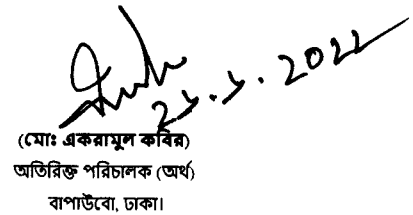 ২৬.১.২০২২
(মোঃ একরামুল কবির)
অতিরিক্ত পরিচালক (অর্থ)
বাপাউবো, ঢাকা।